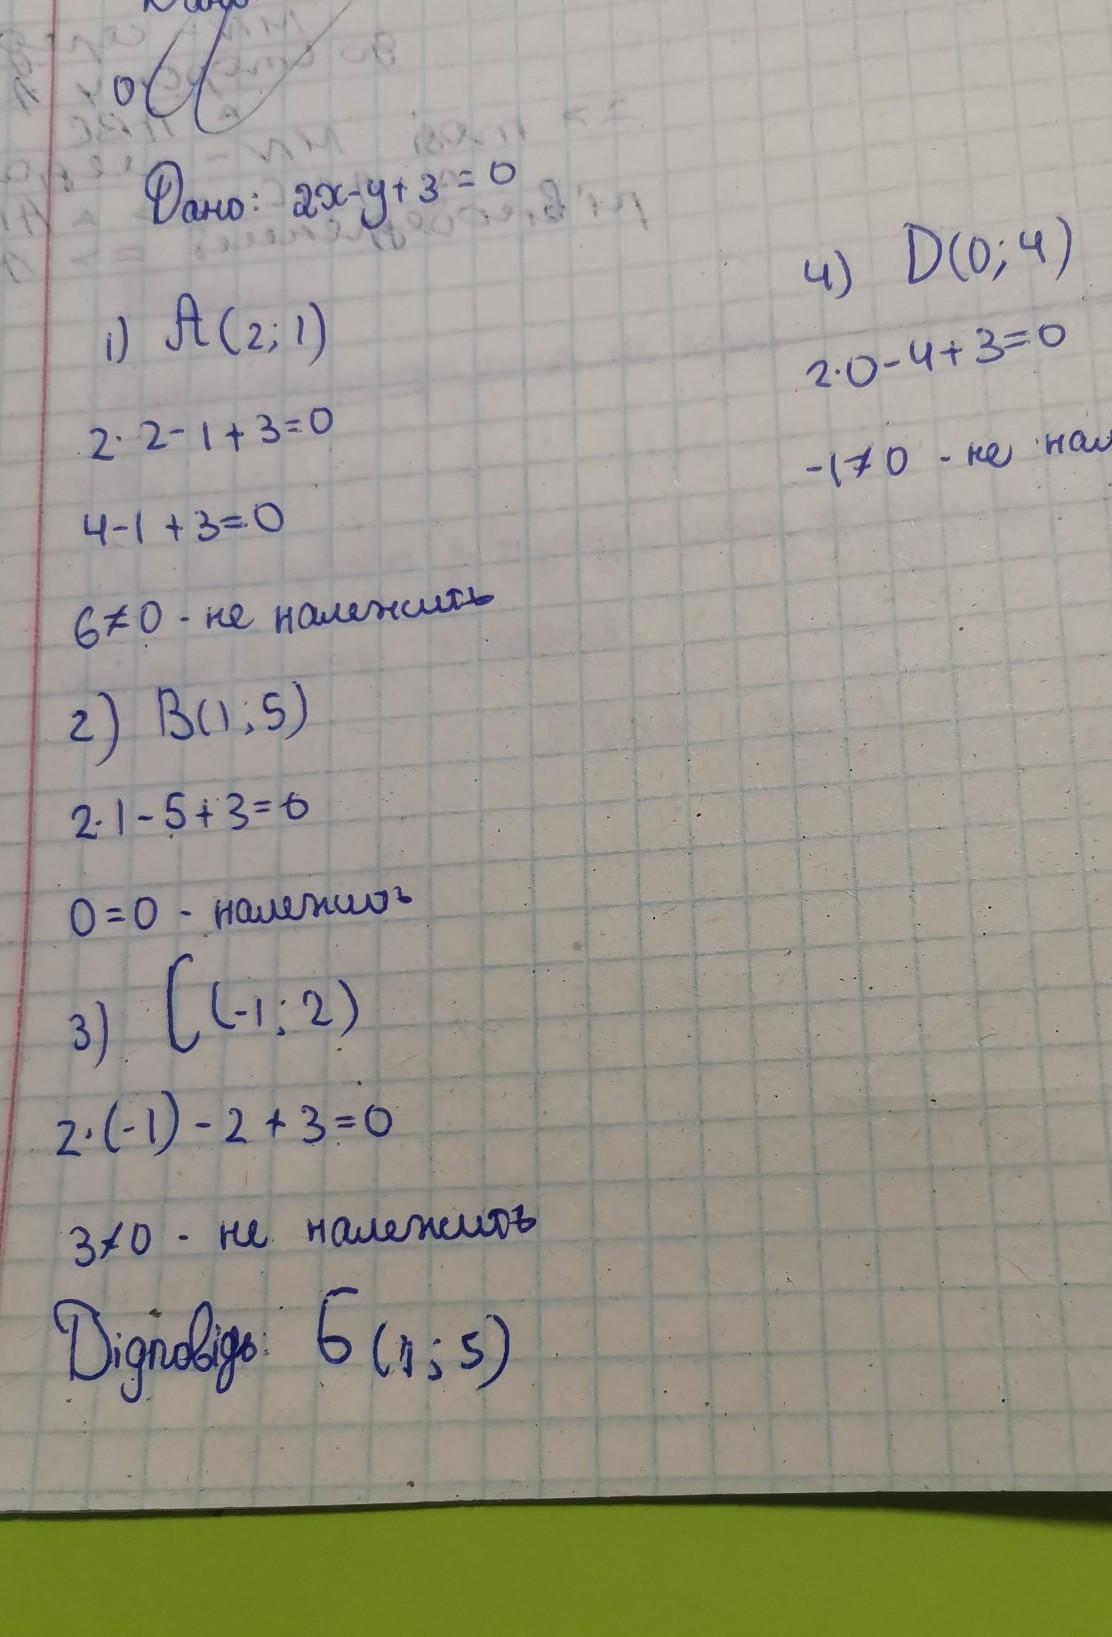 0
Дано: 2x-y+3=0
1) A(2; 1)
2·2-1+3=0
4-1+3=0
6≠0 - не належить
2) B(1; 5)
2·1-5+3=0
0=0 - належить
3) C(-1; 2)
2·(-1)-2+3=0
3≠0 - не належить
Відповідь: Б (1; 5)
4) D(0; 4)
2·0-4+3=0
-1≠0 - не нал